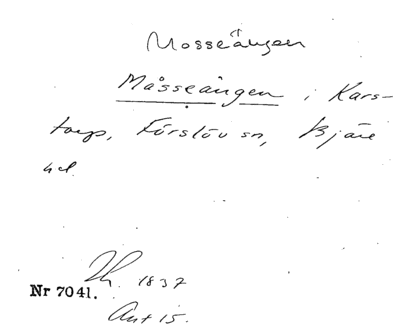 Mosseängen
Måsseängen i Kars-
torp, Förslöv sn, Bjäre
hd.
1837
Nr 7041.
Akt 15.